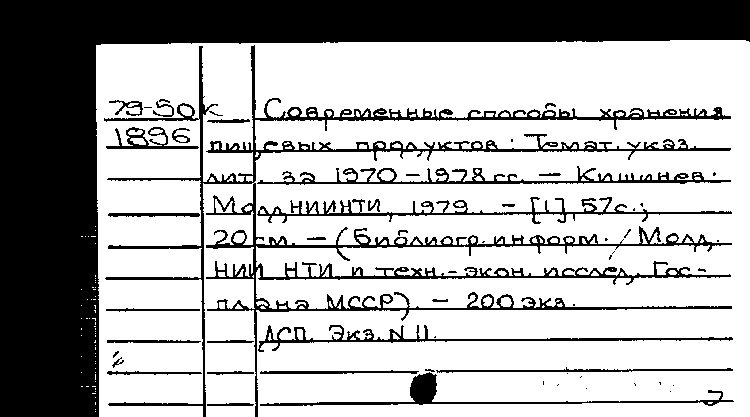 79-50к Современные способы хранения
1896 пищевых продуктов: Темат. указ.
лит. за 1970-1978 гг. — Кишинев:
МолдНИИНТИ, 1979. - [1], 57с.;
20 см. — (Библиогр. информ. / Молд.
НИИ НТИ и техн.-экон. исслед. Гос-
плана МССР). - 200 экз.
ДСП. Экз. N 11.